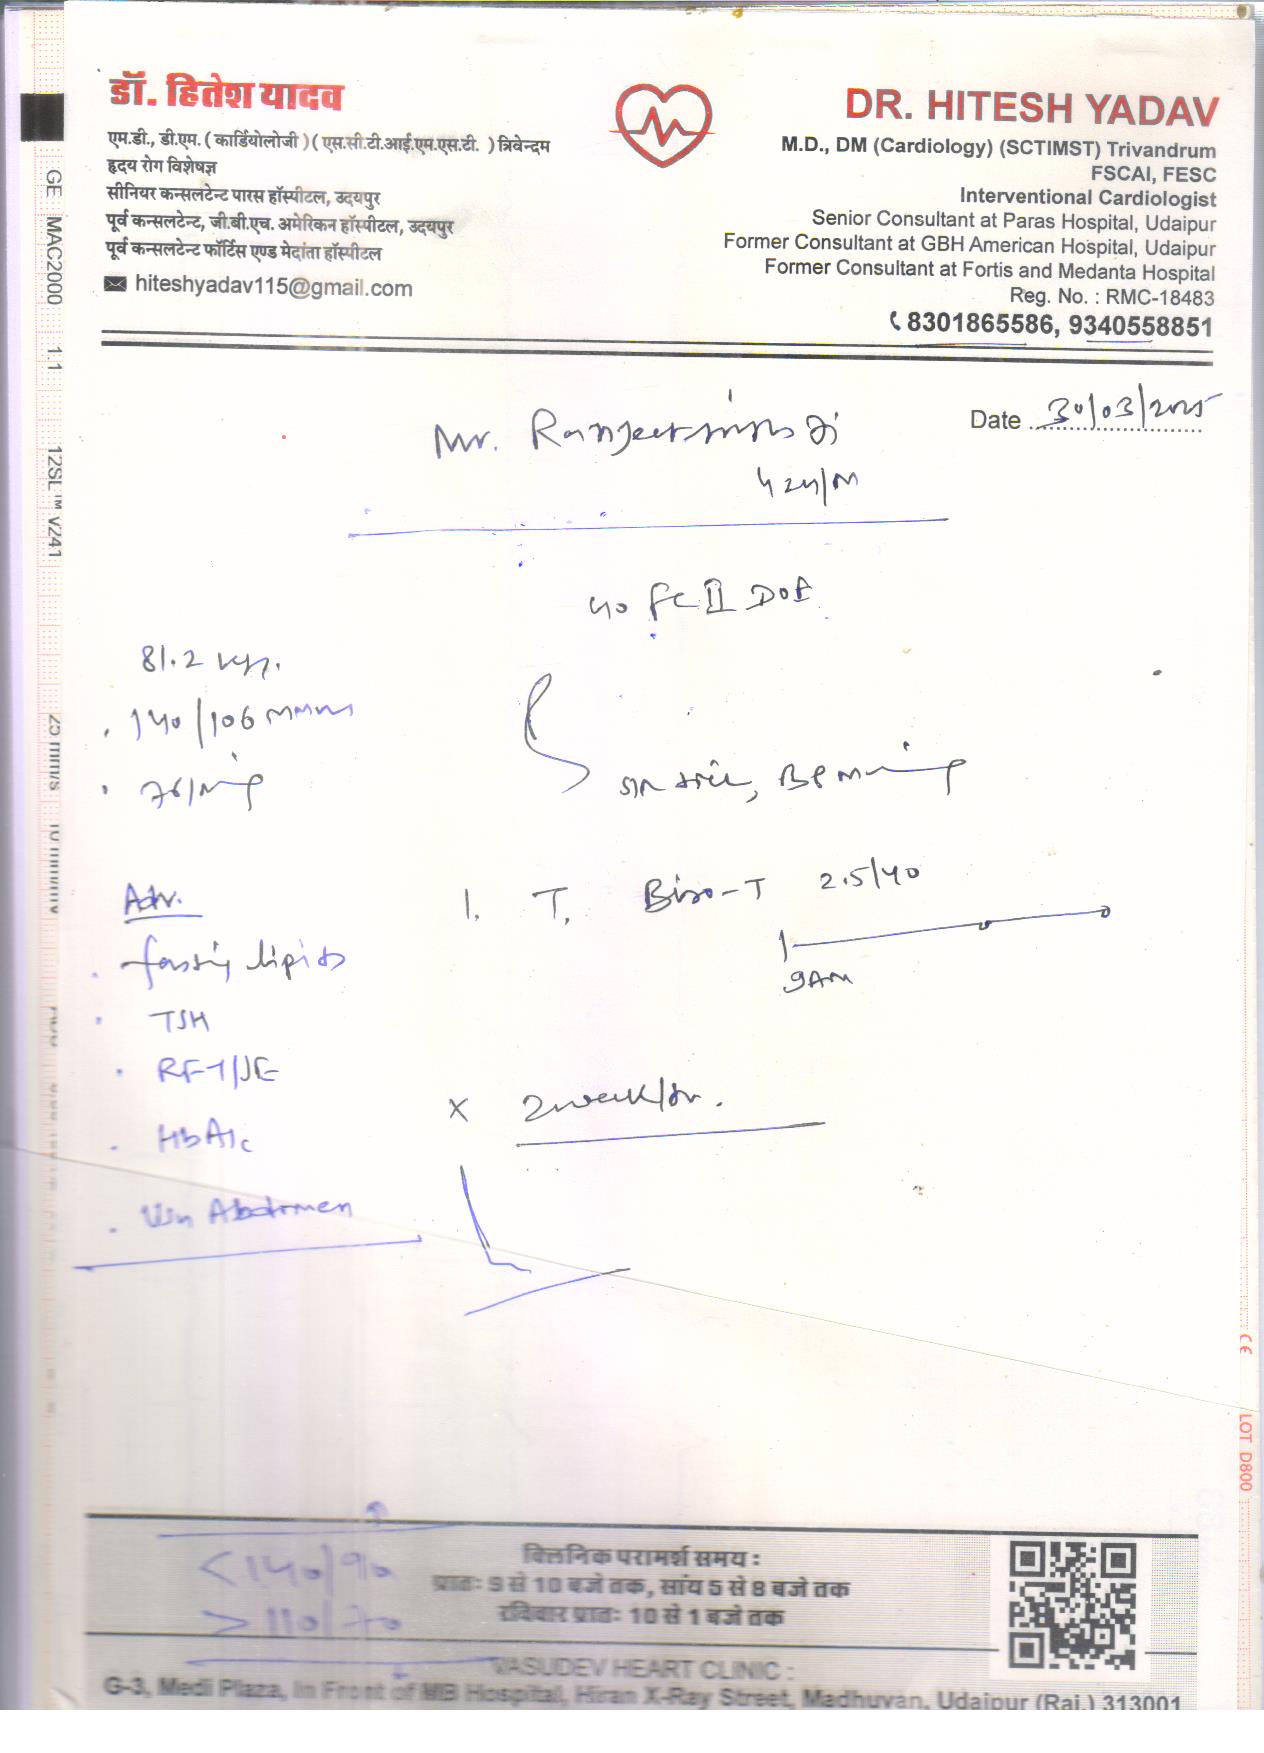 डॉ. हितेश यादव
एम.डी., डी.एम. ( कार्डियोलोजी ) ( एस.सी.टी.आई.एम.एस.टी. ) त्रिवेन्द्रम
हृदय रोग विशेषज्ञ
सीनियर कन्सलटेन्ट पारस हॉस्पीटल, उदयपुर
पूर्व कन्सलटेन्ट, जी.बी.एच. अमेरिकन हॉस्पीटल, उदयपुर
पूर्व कन्सलटेन्ट फॉर्टिस एण्ड मेदांता हॉस्पीटल
hiteshyadav115@gmail.com
DR. HITESH YADAV
M.D., DM (Cardiology) (SCTIMST) Trivandrum
FSCAI, FESC
Interventional Cardiologist
Senior Consultant at Paras Hospital, Udaipur
Former Consultant at GBH American Hospital, Udaipur
Former Consultant at Fortis and Medanta Hospital
Reg. No. : RMC-18483
8301865586, 9340558851
GE MAC2000 1.1 12SL™ v241 25 mm/s 10 mm/mV
Date 30/03/2025
Mr.
FC II DOE
81.2 kgs.
140/106 mmHg
76/min
1. T. Biso-T 2.5/40
9AM
Adv.
fasting lipids
TSH
RFT/SE
HbA1c
Abdomen
x 2 week
<140/90
>110/70
क्लिनिक परामर्श समय :
प्रातः 9 से 10 बजे तक, सांय 5 से 8 बजे तक
रविवार प्रातः 10 से 1 बजे तक
VASUDEV HEART CLINIC :
G-3, Medi Plaza, In Front of MB Hospital, Hiran X-Ray Street, Madhuvan, Udaipur (Raj.) 313001
CE LOT D800